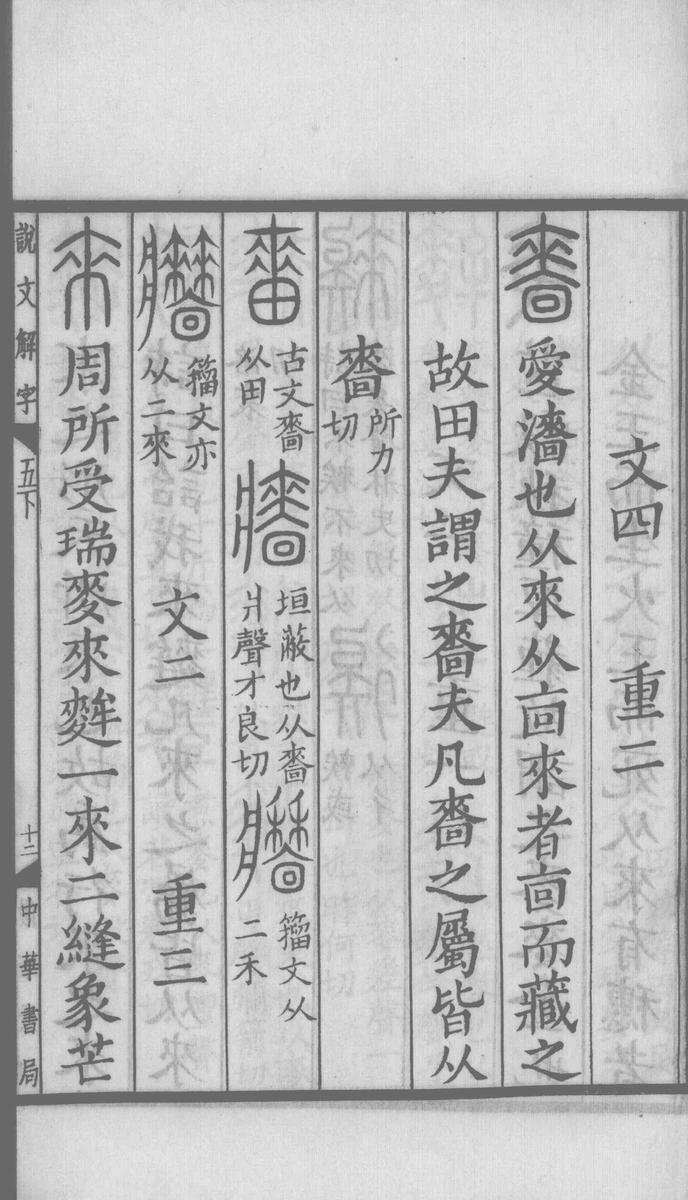 文四 重二
嗇 愛濇也从來从㐭來者㐭而藏之
故田夫謂之嗇夫凡嗇之屬皆从
嗇所力切
古文嗇从田 牆 垣蔽也从嗇爿聲才良切 籀文从二禾
籀文亦从二來 文二 重三
來 周所受瑞麥來麰一來二縫象芒
說文解字 五下 十二 中華書局